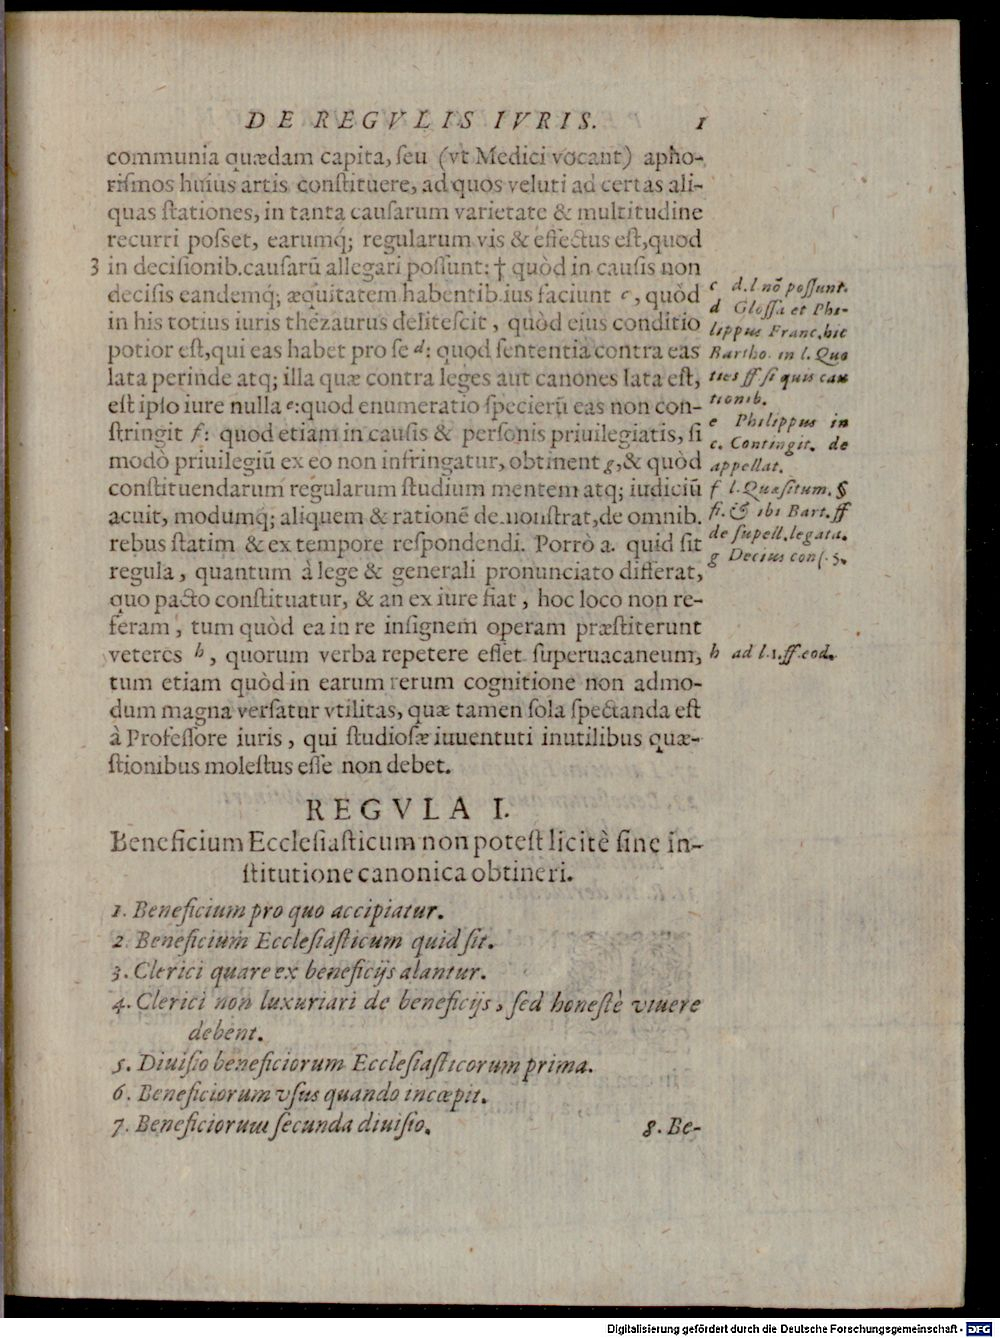 DE REGVLIS IVRIS. 1
communia quædam capita, ſeu (vt Medici vocant) apho-
riſmos huius artis conſtituere, ad quos veluti ad certas ali-
quas ſtationes, in tanta cauſarum varietate & multitudine
recurri poſset, earumq́; regularum vis & effectus eſt, quod
3 in deciſionib. cauſarū allegari poſſunt: † quòd in cauſis non
deciſis eandemq́; æquitatem habentib. ius faciunt c, quòd
in his totius iuris thezaurus deliteſcit, quòd eius conditio
potior eſt, qui eas habet pro ſe d: quod ſententia contra eas
lata perinde atq; illa quæ contra leges aut canones lata eſt,
eſt ipſo iure nulla e: quod enumeratio ſpecierū eas non con-
ſtringit f: quod etiam in cauſis & perſonis priuilegiatis, ſi
modò priuilegiū ex eo non infringatur, obtinent g, & quòd
conſtituendarum regularum ſtudium mentem atq; iudiciū
acuit, modumq́; aliquem & rationē demonſtrat, de omnib.
rebus ſtatim & ex tempore reſpondendi. Porrò a. quid ſit
regula, quantum à lege & generali pronunciato differat,
quo pacto conſtituatur, & an ex iure fiat, hoc loco non re-
feram, tum quòd ea in re inſignem operam præſtiterunt
veteres h, quorum verba repetere eſſet ſuperuacaneum,
tum etiam quòd in earum rerum cognitione non admo-
dum magna verſatur vtilitas, quæ tamen ſola ſpectanda eſt
à Profeſſore iuris, qui ſtudioſæ iuuentuti inutilibus quæ-
ſtionibus moleſtus eſſe non debet.
c d. l nō poſſunt.
d Gloſſa et Phi-
lippus Franc. hic
Bartho. in l. Quo
ties ff ſi quis cau
tionib.
e Philippus in
c. Contingit. de
appellat.
f l. Quæſitum. §
fi. & ibi Bart. ff
de ſupell. legata.
g Decius conſ. 5.
h ad l. 1. ff. eod.
REGVLA I.
Beneficium Eccleſiaſticum non poteſt licitè ſine in-
ſtitutione canonica obtineri.
1. Beneficium pro quo accipiatur.
2. Beneficium Eccleſiaſticum quid ſit.
3. Clerici quare ex beneficijs alantur.
4. Clerici non luxuriari de beneficijs, ſed honeſtè viuere
debent.
5. Diuiſio beneficiorum Eccleſiaſticorum prima.
6. Beneficiorum vſus quando incœpit.
7. Beneficiorum ſecunda diuiſio. 8. Be-
Digitalisierung gefördert durch die Deutsche Forschungsgemeinschaft - DFG